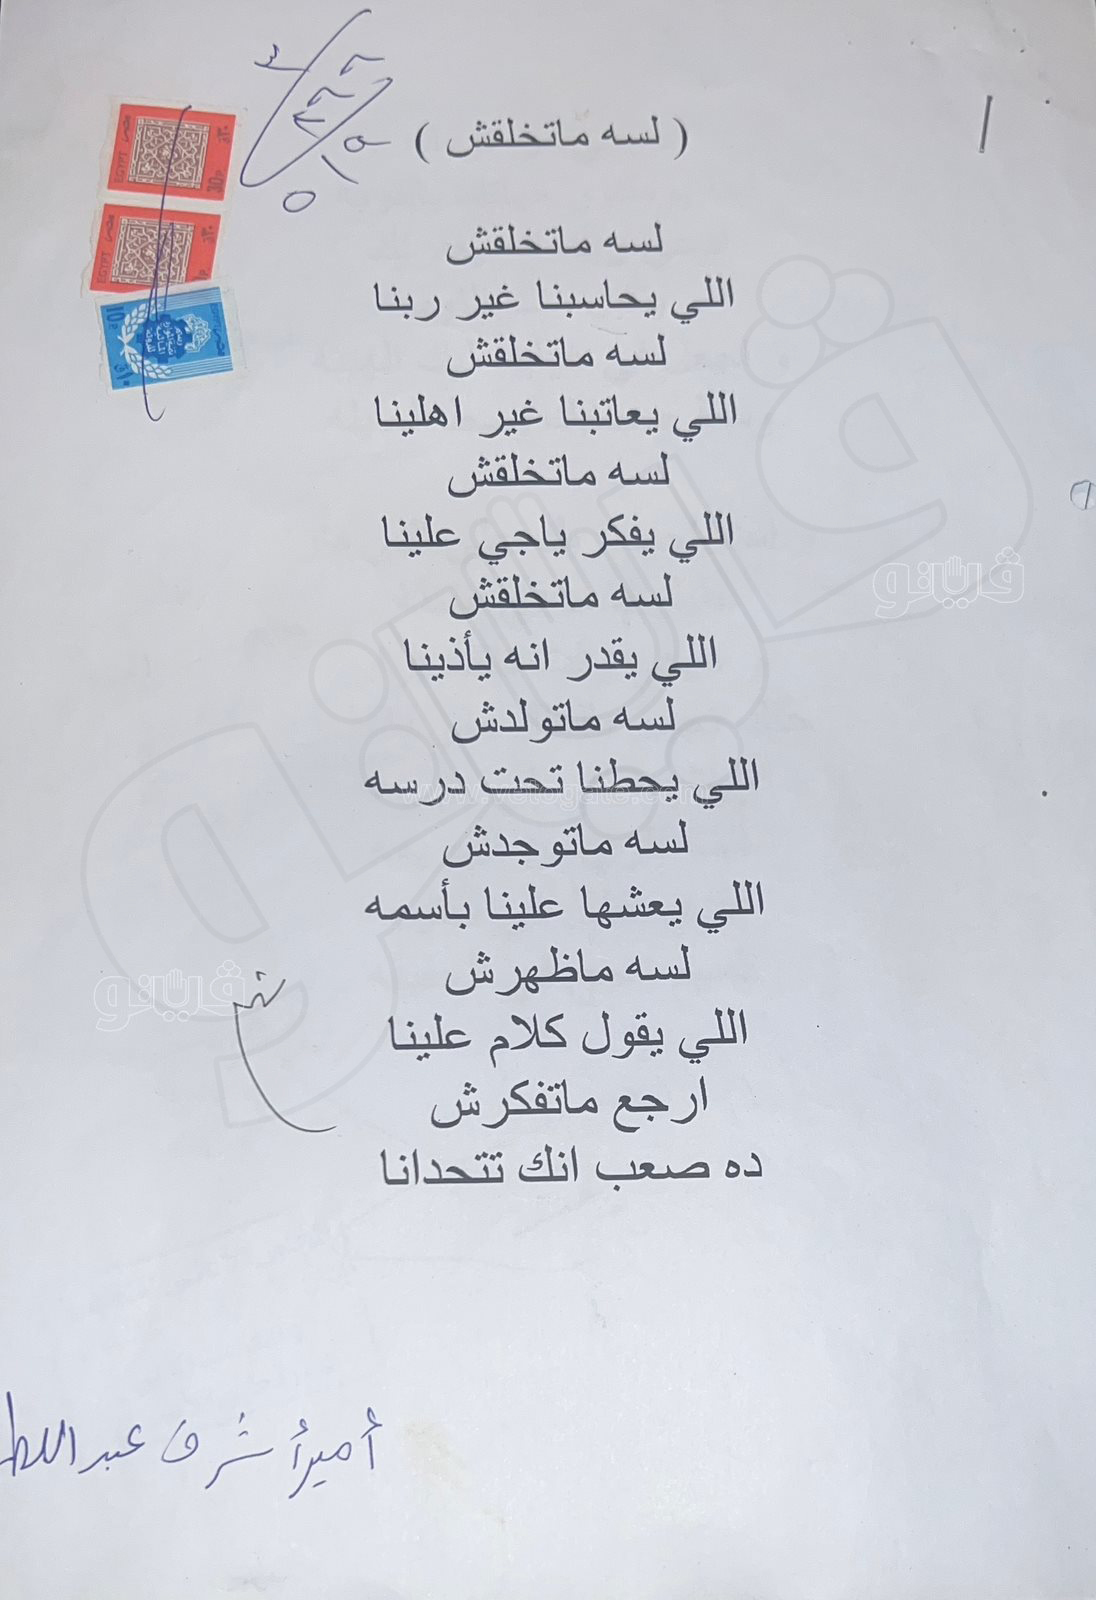 ( لسه ماتخلقش )
لسه ماتخلقش
اللي يحاسبنا غير ربنا
لسه ماتخلقش
اللي يعاتبنا غير اهلينا
لسه ماتخلقش
اللي يفكر ياجي علينا
لسه ماتخلقش
اللي يقدر انه يأذينا
لسه ماتولدش
اللي يحطنا تحت درسه
لسه ماتوجدش
اللي يعشها علينا بأسمه
لسه ماظهرش
اللي يقول كلام علينا
ارجع ماتفكرش
ده صعب انك تتحدانا
أمير أشرف عبد اللط
١
EGYPT مصر
30P
EGYPT مصر
10P
فيتو
فيتو
فيتو
www.vetogate.com